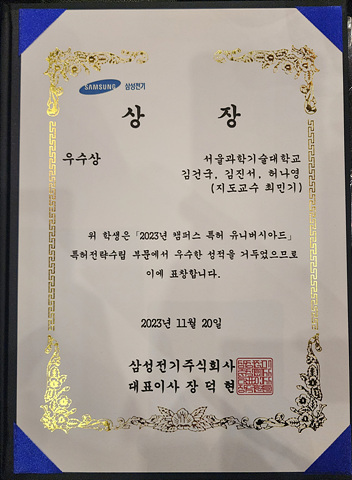 SAMSUNG 삼성전기
상 장
우수상
서울과학기술대학교
김건국, 김진서, 허나영
(지도교수 최민기)
위 학생은 「2023년 캠퍼스 특허 유니버시아드」
특허전략수립 부문에서 우수한 성적을 거두었으므로
이에 표창합니다.
2023년 11월 20일
삼성전기주식회사
대표이사 장덕현